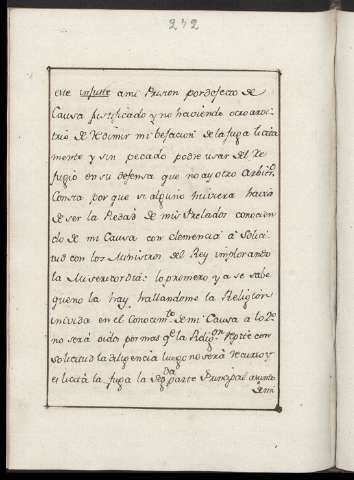 242
este injusto a mi Prision por defecto de
Causa justificada y no haviendo otro arvi-
trio de redimir mi vejacion de la fuga licita
mente y sin pecado podre usar del Re
fugio en su defensa que no ay otro arbitrio
Consta por que si alguno huviera havia
de ser la Piedad de mis Prelados conocien
do de mi Causa con clemencia ā Solici
tud con los Ministros del Rey implorando
la Misericordia: lo primero ya se sabe
que no la hay hallandome la Religion
inivida en el Conocim.to de mi Causa a lo 2.o
no será oida por mas q.e la Relig.on Aplice con
solicitud la diligencia luego no será recurso y
es licita la fuga la Seg.da parte Principal asunto
de mi